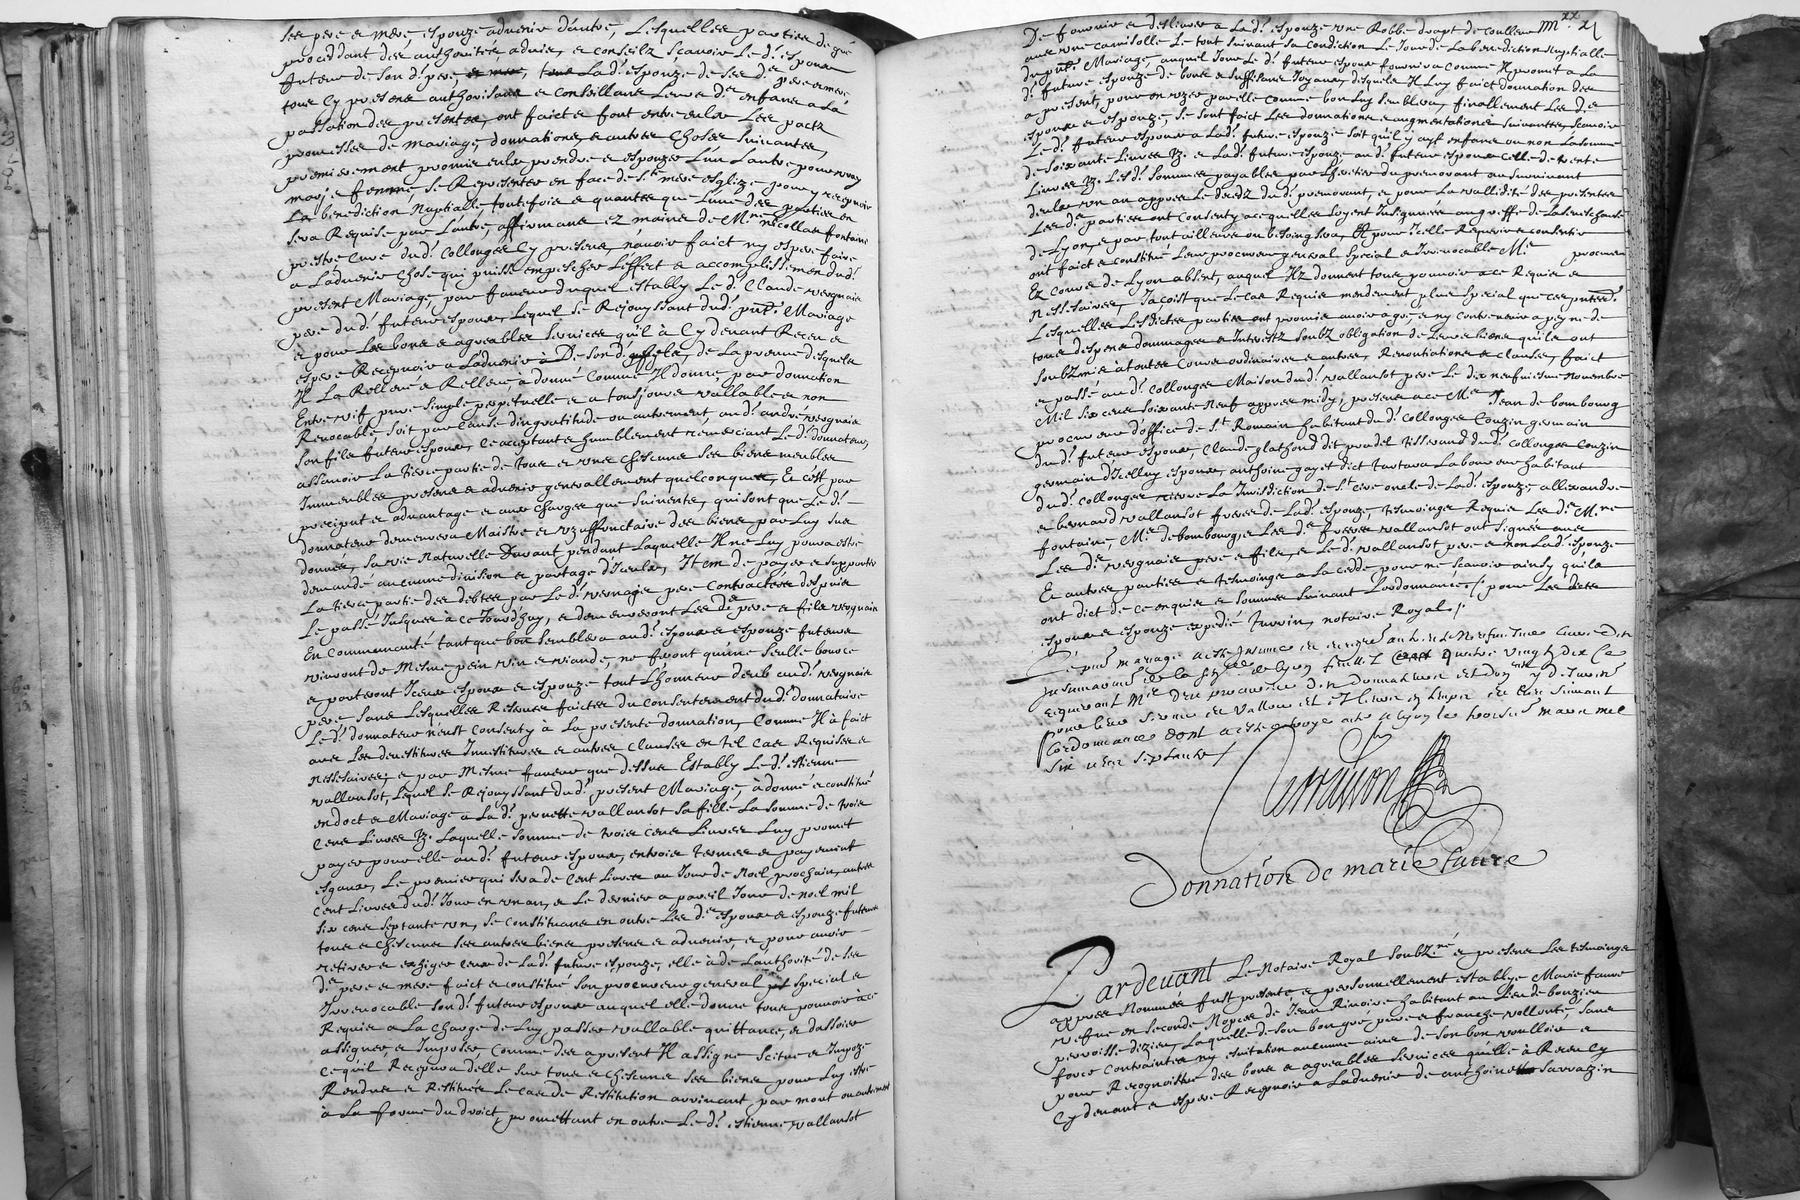 ses pere et mere, espouze advenir d'autre, Lesquelles parties de gré
procedant des authoritez, advis, et conseilz, Scavoir Led. espoux
futeur de Son d. pere, Lad. espouze de ses d. pere et mere
tous Cy presens authorisans et Conseillans Leurs d. enfans a La
passation des presentes, ont faict et font entre eulx Les pactz
promesses de mariage, donnations, et autres choses Suivantes,
premierement promis eulx prendre et espouzer L'un L'autre pour vray
mary et femme Se Representer en face de Ste mere esglize pour y recepvoir
La benediction Nuptialle toutefois et quantes que L'une des parties en
Sera Requise par L'autre, affirmans ez mains de Mre nicollas fontaine
prestre Curé dud. Collonges Cy present, n'avoir faict ny espere faire
a L'advenir Chose qui puisse empescher L'effect et accomplissement dud.
present Mariage, par faveur duquel estably Led. Claude vergnais
pere dud. futeur espoux, Lequel Se Rejouyssant dud. pnt. Mariage
et pour Les bons et agreables Services qu'il à Cy devant Receu et
espere Recepvoir a L'advenir de Sond. filz, de La preuve desquels
Il La Relleve et Relleve, à donné Comme Il donne, par donnation
Entre vif pure Simple perpetuelle et a tousjours vallable et non
Revocable, Soit par Cause d'ingratitude ou autrement, aud. andré vergnais
Son filz futeur espoux, Ce acceptant et humblement remerciant Led. donnateur,
assavoir La tierce partie de tous et uns Chascuns Ses biens meubles
Immeubles presens et advenir generallement quelconques, Et C'est par
preciput et advantage et aux charges que Suivent, qui Sont que Led.
donnateur demeurera Maistre et uzuffructaire des biens par Luy Sus
donnés, Sa vie Naturelle durant pendant Laquelle Il ne Luy pourra estre
demandé aucune division et partage d'Iceulx, Item de payer et Supporter
La tierce partie des debtes par Led. vernais pere Contractées despuis
Le passé Jusques à ce Jourd'huy, et demeureront Lesd. pere et filz vergnais
En Communauté tant que bon Semblera aud. espoux et espouze futeurs
vivront de Mesme pain vin et viande, ne feront qu'une Seulle bource
et porteront Iceux espoux et espouze tout L'honneur deub aud. vergnais
pere Sans Lesquelles Reserves faictes du Consentement dud. donnataire
Led. donnateur n'eust Consenty à La presente donnation, Comme Il à faict
avec Les devestitures Investitures et autres Clauses en tel Cas Requises et
nessesaires, et par Mesme faveur que dessus Estably Led. estienne
vallansot, Lequel Se Rejouyssant dud. present Mariage, à donné et constitué
en doct et Mariage à Lad. pernette vallansot Sa fille La Somme de trois
Cens Livres tz. Laquelle Somme de trois Cens Livres Luy promet
payer pour elle aud. futeur espoux, en trois termes et payement
esgaux, Le premier qui Sera de Cent Livres au Jour de Noel prochain, autres
Cent Livres dud. Jour en un an, et Le dernier a pareil Jour de noel mil
Six cens Septante un, Se Constituans en outre Lesd. espoux et espouze futeurs
tous et Chescuns Ses autres biens presens et advenir, et pour avoir
retirer et exhiger Ceux de Lad. future espouze, elle à de L'authorité de Ses
d. pere et mere faict et constitué Son procureur general Special et
Irrevocable Sond. futeur espoux auquel elle donne tous pouvoir à ce
Requis a La Charge de Luy, passer vallable quittance, et d'assoir
assigner, et Imposer, Comme des a present Il assigne Scitue et Impoze
Ce qu'il Recepvra d'elle Sur tous et Chescuns Ses biens, pour Luy estre
Rendus et Restitués Le Cas de Restitution arrivant par mort ou autrement
à La forme du droict, promettant en outre Led. estienne vallansot
IIII xx XI
De fournir et deslivrer a Lad. espouze une Robbe drapt de coulleur
avec une Camisolle Le tout Suivant Sa condition Le Jour de La benediction Nuptialle
du pnt. Mariage, auquel Jour Led. futeur espoux fournira Comme Il promet a La
d. future espouze de bons et Suffisans Joyaux, desquels Il Luy faict donnation des
a present, pour en uzer par elle Comme bon Luy Semblera, finallement Les d.
espoux et espouze, Se Sont faict Les donnations et augmentations Suivantes, Scavoir
Led. futeur espoux a Lad. future espouze Soit qu'il y ayt enfans ou non La Somme
de Soixante Livres tz. et Lad. future espouze aud. futeur espoux Celle de trente
Livres tz. Lesd. Sommes payables par L'heritier du premourant au Survivant
d'eulx un an apprés Le deceds dud. premourant, et pour La vallidité des presentes
Lesd. parties ont Consenty a ce quelles Soyent Insignuées au greffe de La Seneschaucée
de Lyon et par tout ailleurs ou besoing Sera, Et pour Icelle Requerir et Consentir
ont faict et constitué Leur procureur general Special et Irrevocable Me procureur
Ez Cours de Lyon absent, auquel Ilz donnent tous pouvoir a ce Requis et
nessessaires, Jacoist que Le Cas Requis mandement plus Special que ces pntes.
Lesquelles Lesdictes parties ont promis avoir a gré et ny Contrevenir a peyne de
tous despens dommages et Interestz Soubz obligation de Leurs biens qu'ils ont
Soubzmis à toutes Cours ordinaires et autres, Renontiations et Clauses, faict
et passé aud. Collonges Maison dud. vallansot pere Le dix neufviesme Novembre
Mil Six cens Soixante Neuf apprés midy, presens a ce Me Jean de bombourg
procureur d'office de St Romain habitant dud. Collonges Couzin germain
dud. futeur espoux, Claude glathoud dit pradel tisserand dud. Collonges Couzin
germain d'Icelluy espoux, anthoine gayet dict Tartara Laboureur habitant
dud. Collonges riere La Jurisdiction de St Cire oncle de Lad. espouze allexandre
et bernard vallansot freres de Lad. espouze, tesmoings Requis Les d. Mre
fontaine, Me de bombourg, et Les d. freres vallansot ont Signés avec
Les d. vergnais pere et filz, et Led. vallansot pere et non Lad. espouze
Et autres parties et tesmoings a La cedde pour ne Scavoir ainsy quils
ont dict de ce enquis et Sommés Suivant L'ordonnance, pour Les ditz
espoux et espouze expedié Juvin, notaire Royal.
Le pnt mariage a esté Insinué et enregré au Livre Neufviesme
Insinuaons de la Sen. de Lyon fuellet quatre vingtz dix Ce
requerant Me procureur des donnateur et don.re y desnommés
pour leur Servir et valloir et
L'ordonnance dont acte octroyé a Lyon Le troisie mars mil
Six cens Septante
Donnation de marie faure
Pardevant Le Notaire Royal Soubz.né et presens Les tesmoings
apprés Nommés fust presente et personnellement establye Marie faure
vefve en seconde Nopces de Jean Rivoire habitant au Lieu de bouzieu
perroisse dizieu, Laquelle de son bon gré, pure et franche vollonté, sans
force Contrainte ny esuitation aucunne ains de son bon voulloir et
pour Recognoistre des bons et agreables Services qu'elle à Receu Cy
Cy devant et espere Recepvoir a L'advenir de anthoinette Sarrazin